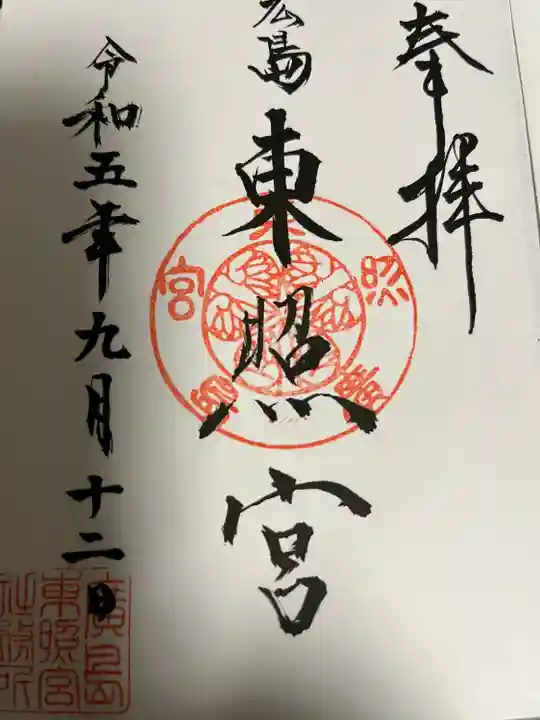 奉拝
広島
東照宮
令和五年九月十二日
廣島
東照宮
社務所